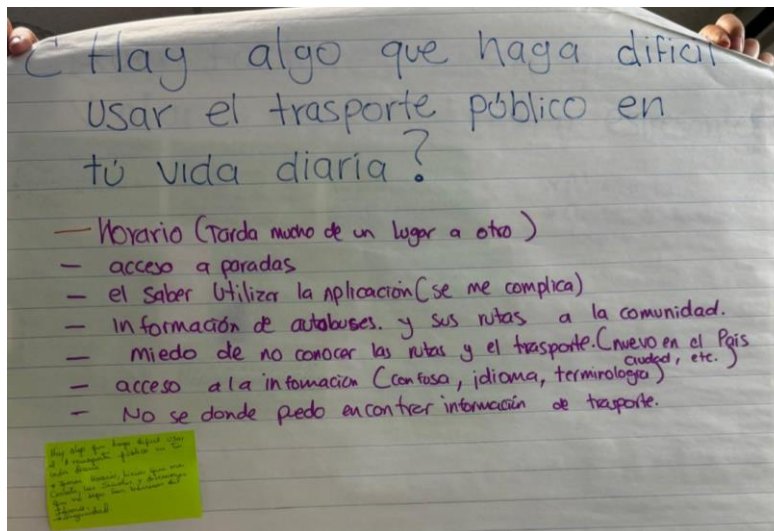 ¿ Hay algo que haga dificil
usar el trasporte público en
tú vida diaria?
— Horario (Tarda mucho de un lugar a otro)
— acceso a paradas
— el saber Utilizar la Aplicación (se me complica)
— Información de autobuses. y sus rutas a la comunidad.
— miedo de no conocer las rutas y el trasporte. (nuevo en el País
ciudad, etc.)
— acceso a la infomacion (confosa, idioma, termirología)
— No se donde puedo encontrer información de trasporte.
Hay algo que haga dificil usar
el transporte público en tu
vida diaria